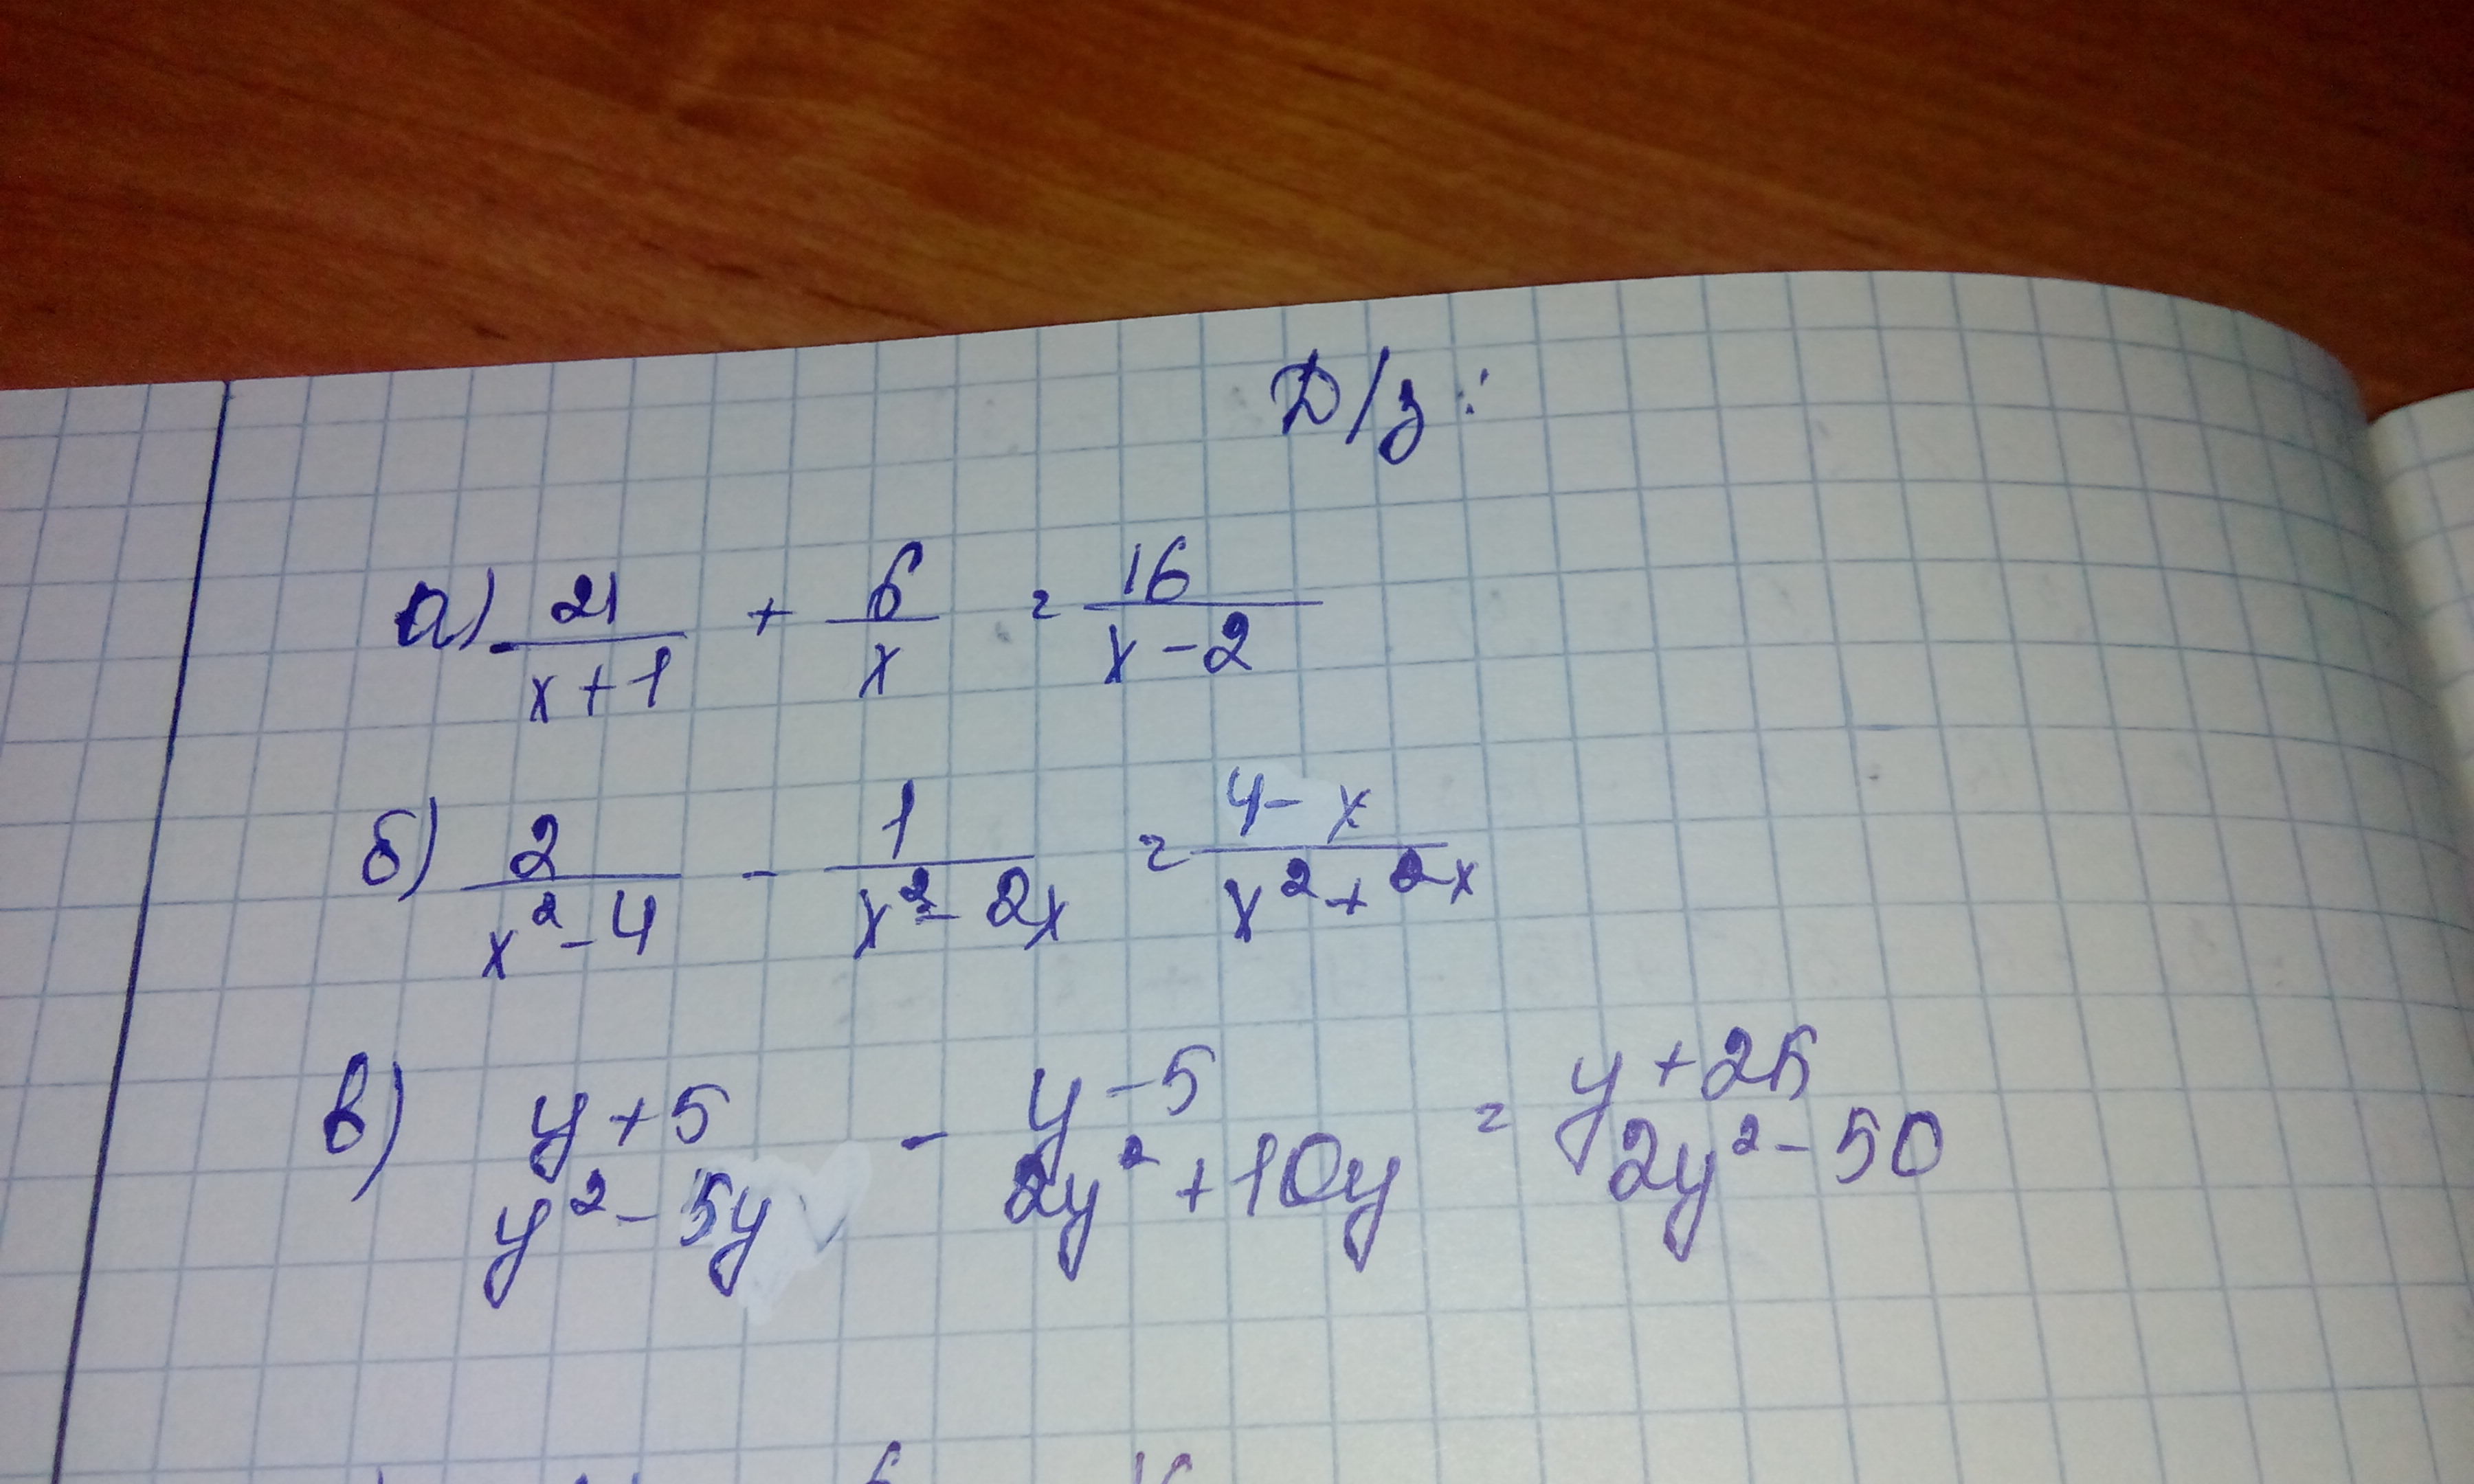 Д/з:
а) 21/(x+1) + 6/x = 16/(x-2)
б) 2/(x²-4) - 1/(x²-2x) = (4-x)/(x²+2x)
в) (y+5)/(y²-5y) - (y-5)/(2y²+10y) = (y+25)/(2y²-50)